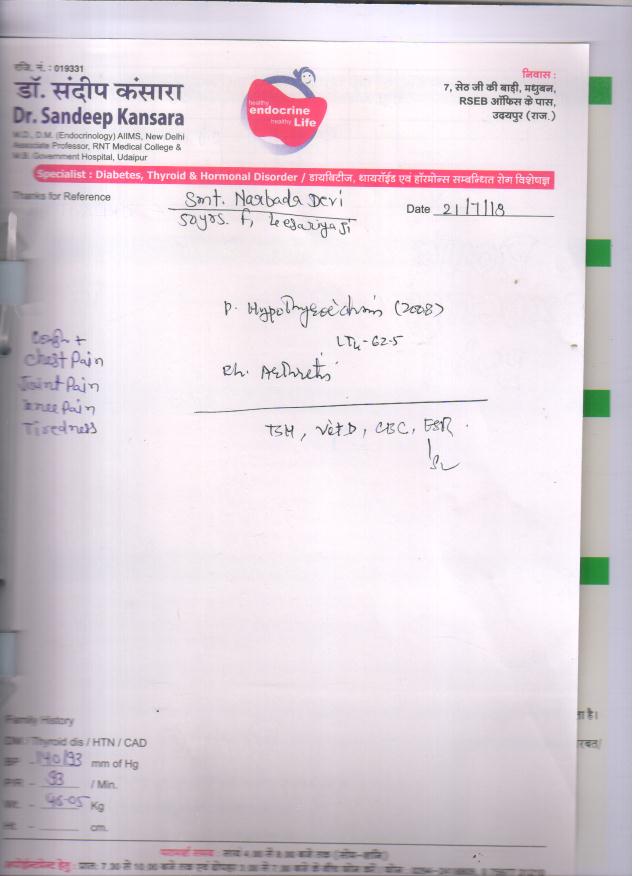 रजि. नं. : 019331
डॉ. संदीप कंसारा
Dr. Sandeep Kansara
M.D., D.M. (Endocrinology) AIIMS, New Delhi
Associate Professor, RNT Medical College &
M.B. Government Hospital, Udaipur
healthy
endocrine
healthy Life
निवास :
7, सेठ जी की बाड़ी, मधुबन,
RSEB ऑफिस के पास,
उदयपुर (राज.)
Specialist : Diabetes, Thyroid & Hormonal Disorder / डायबिटीज, थायरॉईड एवं हॉरमोन्स सम्बन्धित रोग विशेषज्ञ
Thanks for Reference
Smt. Narbada Devi
Date 21/7/18
50yrs. F, Kesariyaji
P. Hypothyroidism (2008)
LT4-62.5
Cough +
Chest Pain
Joint Pain
Knee Pain
Tiredness
Rh. Arthritis
TSH, Vit D, CBC, ESR
Family History
DM / Thyroid dis / HTN / CAD
BP - 140/93 mm of Hg
P/R - 93 / Min.
Wt. - 46.05 Kg
Ht. - cm.
ता है।
परामर्श समय : सायं 4.30 से 8.30 बजे तक (सोम-शनि)